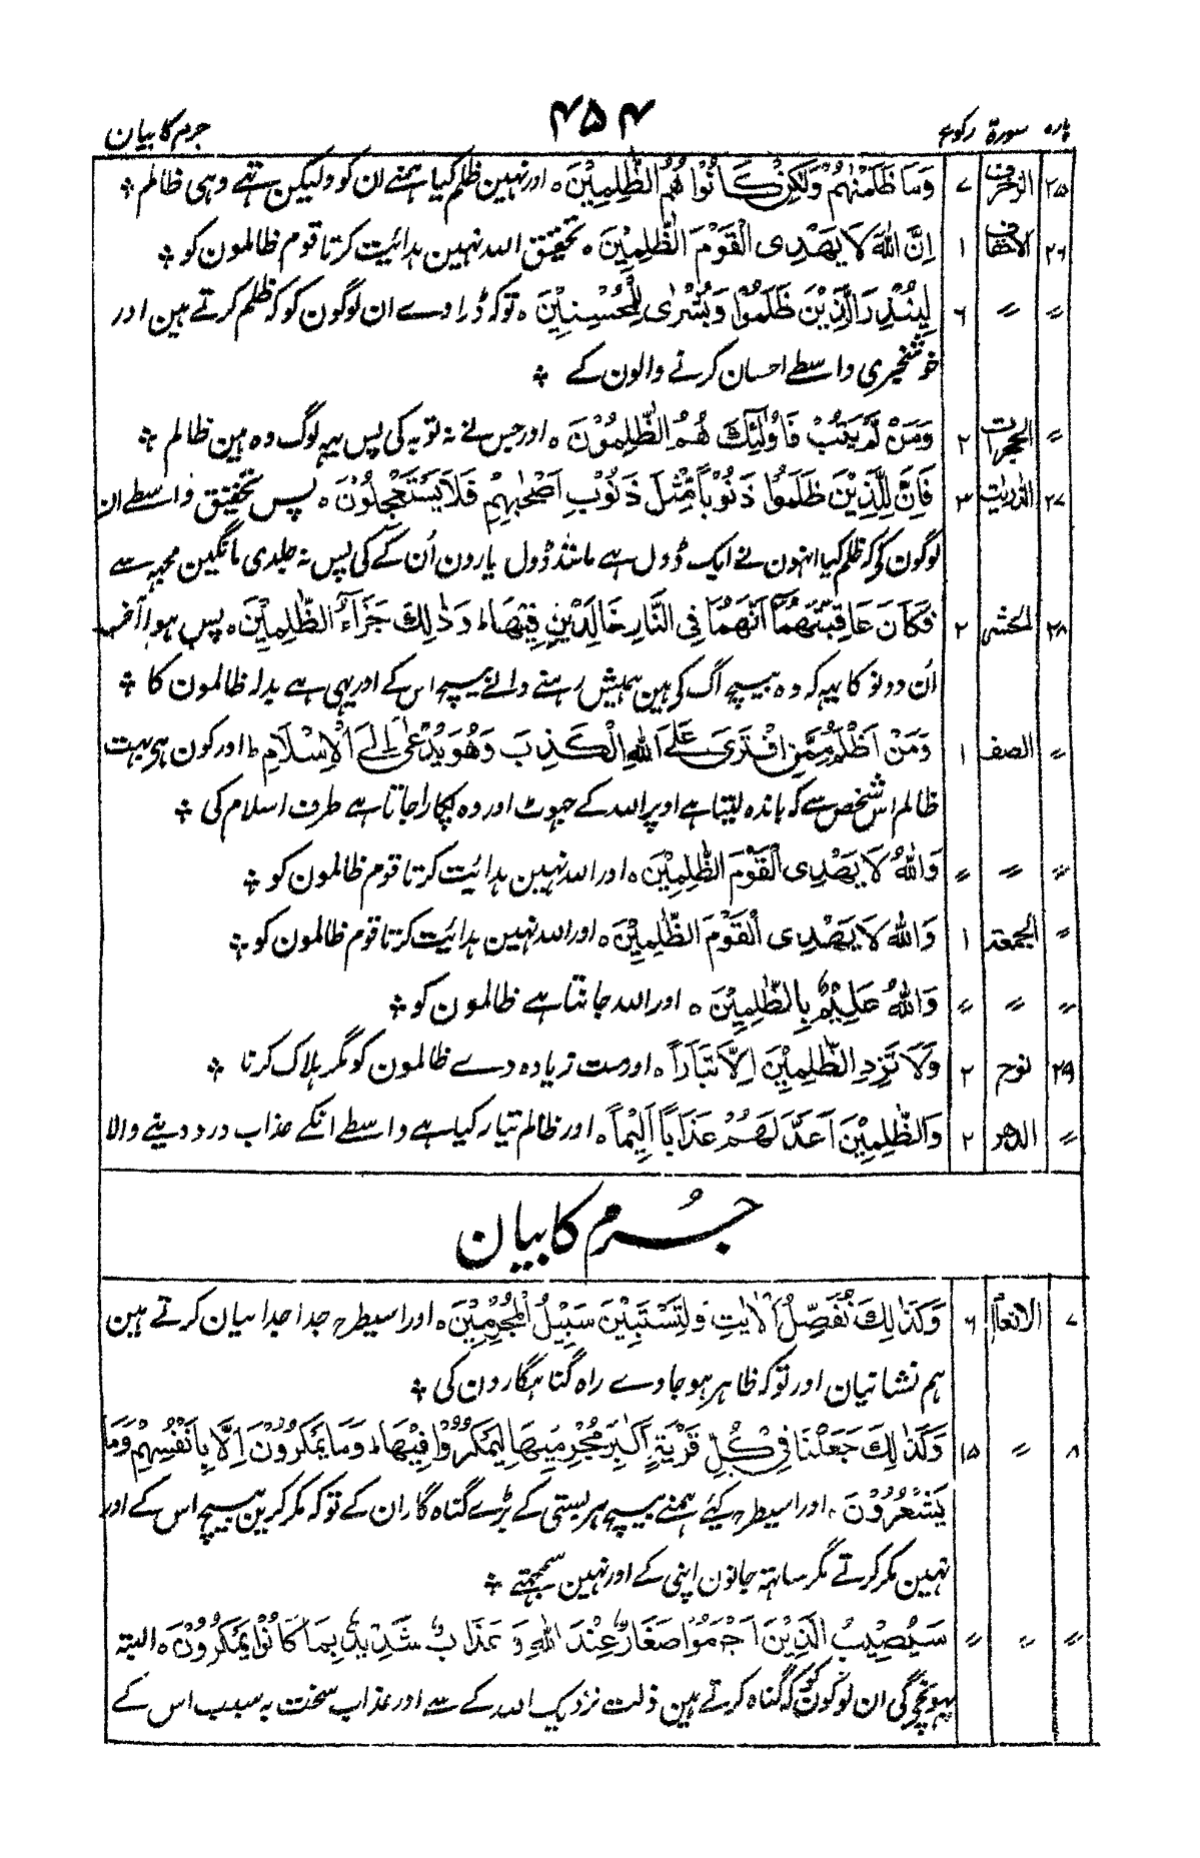 پارہ سورۃ رکوع ۴۵۴ جرم کا بیان
۲۵ الزخرف ۷ وَمَا ظَلَمْنٰهُمْ وَلٰكِنْ كَانُوْا هُمُ الظّٰلِمِيْنَ ہ اور نہین ظلم کیا ہمنے ان کو ولیکن تہے وہی ظالم
۲۶ الاحقاف ۱ اِنَّ اللّٰهَ لَا يَهْدِى الْقَوْمَ الظّٰلِمِيْنَ ہ تحقیق اللہ نہین ہدائیت کرتا قوم ظالمون کو
〃 〃 ۶ لِيُنْذِرَ الَّذِيْنَ ظَلَمُوْا وَبُشْرٰى لِلْمُحْسِنِيْنَ ہ توکہ ڈراوے ان لوگون کو کہ ظلم کرتے ہین اور
خوشخبری واسطے احسان کرنے والون کے
〃 الحجرات ۲ وَمَنْ لَّمْ يَتُبْ فَاُولٰٓئِكَ هُمُ الظّٰلِمُوْنَ ہ اور جس نے نہ توبہ کی پس یہہ لوگ وہ ہین ظالم
۲۷ الذریت ۳ فَاِنَّ لِلَّذِيْنَ ظَلَمُوْا ذَنُوْبًا مِّثْلَ ذَنُوْبِ اَصْحٰبِهِمْ فَلَا يَسْتَعْجِلُوْنَ ہ پس تحقیق واسطے ان
لوگون کو کہ ظلم کیا انہون نے ایک ڈول ہے مانند ڈول یارون اُن کے کی پس نہ جلدی مانگین مجہہ سے
۲۸ الحشر ۲ فَكَانَ عَاقِبَتَهُمَآ اَنَّهُمَا فِى النَّارِ خَالِدَيْنِ فِيْهَا ؕ وَذٰلِكَ جَزٰٓؤُا الظّٰلِمِيْنَ ہ پس ہوا آخر
اُن دونو کا یہہ کہ وہ بیچ آگ کی ہین ہمیش رہنے والے بیچ اس کے اور یہی ہے بدلہ ظالمون کا
〃 الصف ۱ وَمَنْ اَظْلَمُ مِمَّنِ افْتَرٰى عَلَى اللّٰهِ الْكَذِبَ وَهُوَ يُدْعٰىٓ اِلَى الْاِسْلَامِ ؕ اور کون ہی بہت
ظالم اس شخص سے کہ باندہ لیتا ہے اوپر اللہ کے جہوٹ اور وہ پکارا جاتا ہے طرف اسلام کی
〃 〃 〃 وَاللّٰهُ لَا يَهْدِى الْقَوْمَ الظّٰلِمِيْنَ ہ اور اللہ نہین ہدائیت کرتا قوم ظالمون کو
〃 الجمعۃ ۱ وَاللّٰهُ لَا يَهْدِى الْقَوْمَ الظّٰلِمِيْنَ ہ اور اللہ نہین ہدائیت کرتا قوم ظالمون کو
〃 〃 〃 وَاللّٰهُ عَلِيْمٌۢ بِالظّٰلِمِيْنَ ہ اور اللہ جانتا ہے ظالمون کو
۲۹ نوح ۲ وَلَا تَزِدِ الظّٰلِمِيْنَ اِلَّا تَبَارًا ہ اور مت زیادہ دے ظالمون کو مگر ہلاک کرنا
〃 الدھر ۲ وَالظّٰلِمِيْنَ اَعَدَّ لَهُمْ عَذَابًا اَلِيْمًا ہ اور ظالم تیار کیا ہے واسطے انکے عذاب درد دینے والا
جُرم کا بیان
۷ الانعام ۶ وَكَذٰلِكَ نُفَصِّلُ الْاٰيٰتِ وَلِتَسْتَبِيْنَ سَبِيْلُ الْمُجْرِمِيْنَ ہ اور اسیطرح جدا جدا بیان کرتے ہین
ہم نشانیان اور توکہ ظاہر ہو جاوے راہ گناہگارون کی
۸ 〃 ۱۵ وَكَذٰلِكَ جَعَلْنَا فِىْ كُلِّ قَرْيَةٍ اَكٰبِرَ مُجْرِمِيْهَا لِيَمْكُرُوْا فِيْهَا ؕ وَمَا يَمْكُرُوْنَ اِلَّا بِاَنْفُسِهِمْ وَمَا
يَشْعُرُوْنَ ہ اور اسیطرح کیئے ہمنے بیچ ہر بستی کے بڑے گناہ گار ان کے توکہ مکر کرین بیچ اس کے اور
نہین مکر کرتے مگر ساتہہ جانون اپنی کے اور نہین سمجہتے
〃 〃 〃 سَيُصِيْبُ الَّذِيْنَ اَجْرَمُوْا صَغَارٌ عِنْدَ اللّٰهِ وَ عَذَابٌ شَدِيْدٌۢ بِمَا كَانُوْا يَمْكُرُوْنَ ہ البتہ
پہونچیگی ان لوگون کو کہ گناہ کرتے ہین ذلت نزدیک اللہ کے سے اور عذاب سخت بہ سبب اس کے